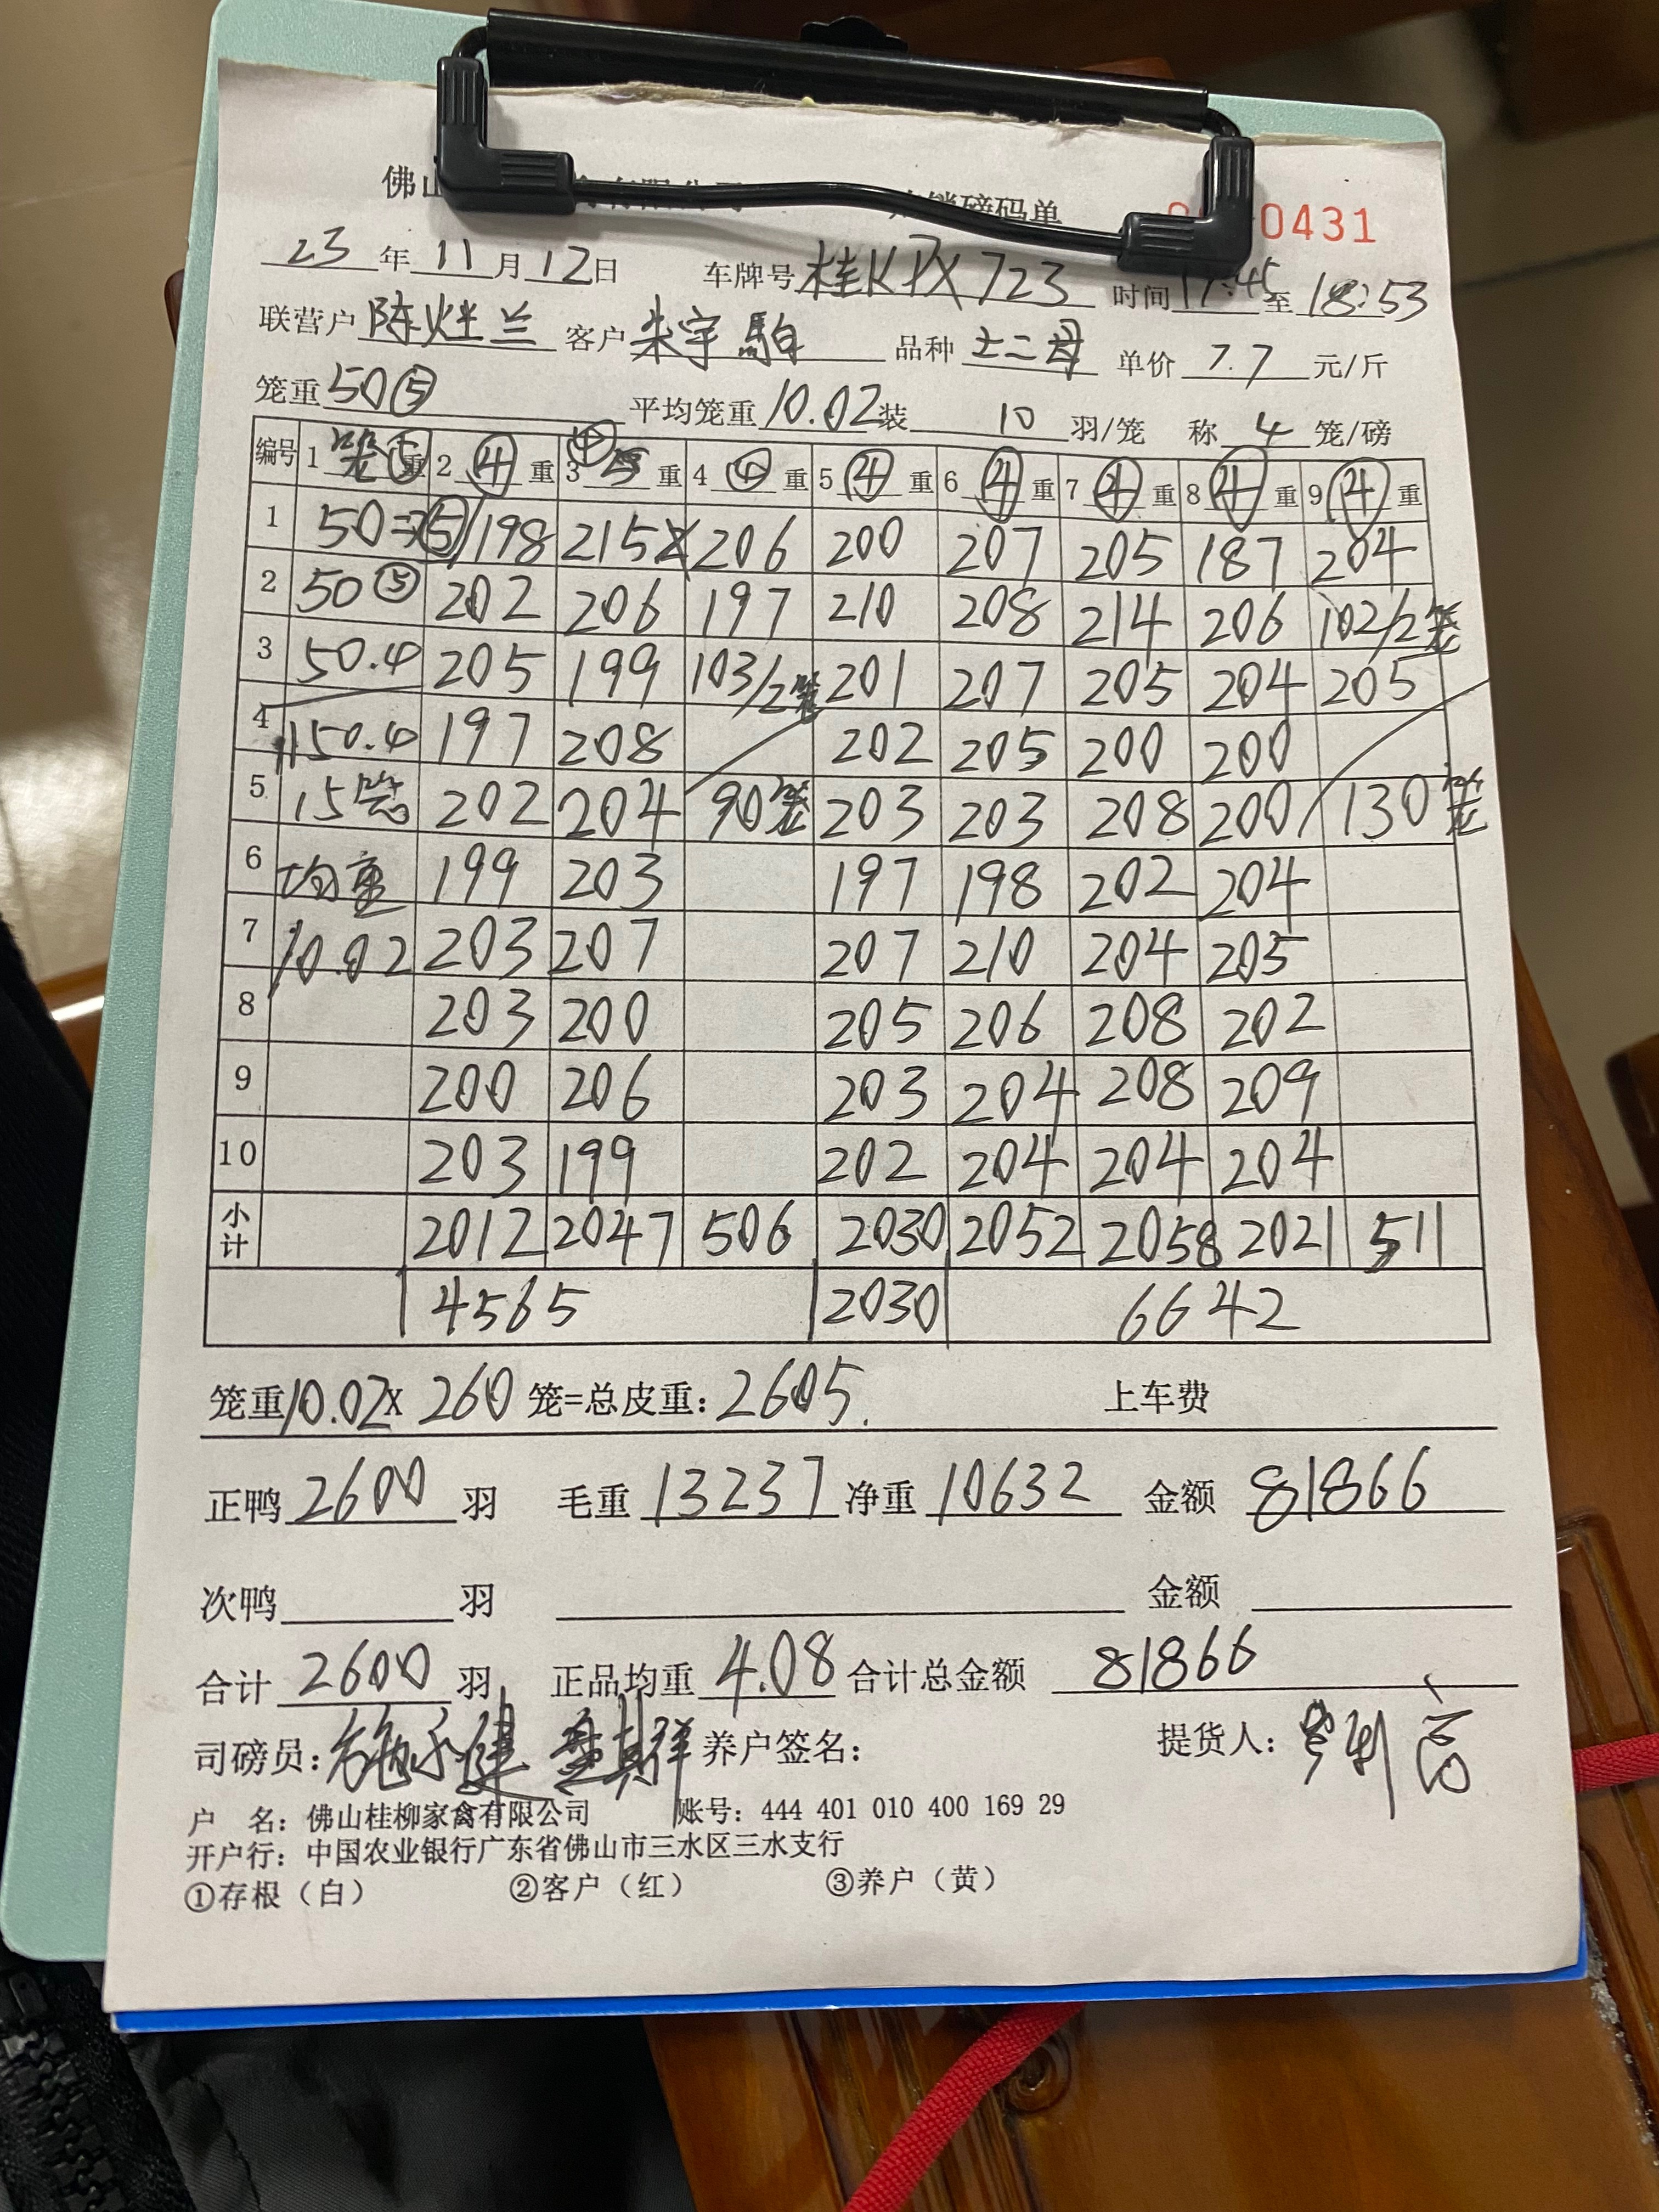 佛山 销磅码单 0431
23年11月12日 车牌号桂KPX723 时间17:45至18:53
联营户陈灶兰 客户朱宇 品种土二母 单价7.7元/斤
笼重50⑤ 平均笼重10.02装10羽/笼 称4笼/磅
编号 1笼⑤重 2④重 3④重 4④重 5④重 6④重 7④重 8④重 9④重
1 50⑤ 198 215 206 200 207 205 187 204
2 50⑤ 202 206 197 210 208 214 206 102/2笼
3 50.4 205 199 103/2笼 201 207 205 204 205
4 150.4 197 208 202 205 200 200
5 15笼 202 204 90笼 203 203 208 200 130笼
6 均重 199 203 197 198 202 204
7 10.02 203 207 207 210 204 205
8 203 200 205 206 208 202
9 200 206 203 204 208 209
10 203 199 202 204 204 204
小计 2012 2047 506 2030 2052 2058 2021 511
4565 2030 6642
笼重10.02X260笼=总皮重:2605. 上车费
正鸭2600羽 毛重13237净重10632 金额81866
次鸭 羽 金额
合计2600羽 正品均重4.08合计总金额81866
司磅员: 养户签名: 提货人:
户 名:佛山桂柳家禽有限公司 账号:444 401 010 400 169 29
开户行:中国农业银行广东省佛山市三水区三水支行
①存根(白) ②客户(红) ③养户(黄)